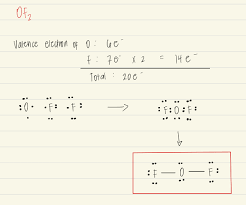 OF₂
Valence electron of O : 6e⁻
F : 7e⁻ × 2 = 14e⁻
Total : 20e⁻
O F F → F O F
F — O — F